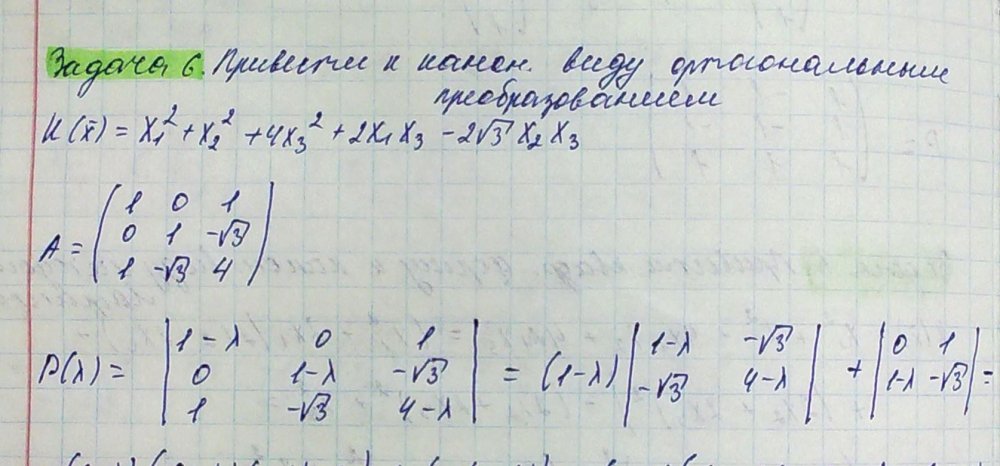 Задача 6. Привести к канон. виду ортогональным
преобразованием
K(x̄) = x₁² + x₂² + 4x₃² + 2x₁x₃ - 2√3 x₂x₃
A = ( 1 0 1
0 1 -√3
1 -√3 4 )
P(λ) = | 1-λ 0 1
0 1-λ -√3
1 -√3 4-λ | = (1-λ) | 1-λ -√3
-√3 4-λ | + | 0 1
1-λ -√3 | =